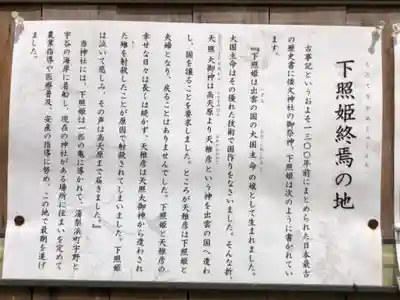 下照姫終焉の地
古事記というおよそ一三〇〇年前にまとめられた日本最古
の歴史書に倭文神社の御祭神、下照姫は次のように書かれてい
ます。
『下照姫は出雲の国の大国主命の娘として生まれました。
大国主命はその優れた技術で国作りをなさいました。そんな折、
天照大御神は高天原より天稚彦という神を出雲の国へ遣わ
し、国を譲ることを要求しました。ところが天稚彦は下照姫と
夫婦となり、戻ることはありませんでした。下照姫と天稚彦の
幸せな日々は長くは続かず、天稚彦は天照大御神から遣わされ
た雉を射殺したことが原因で射殺されてしまいました。下照姫
は泣いて悲しみ、その声は高天原まで届きました。』
当神社には、下照姫は一匹の亀に導かれて、湯梨浜町宇野と
宇谷の海岸に着船し、現在の神社がある場所に住まいを定めて
農業指導や医療普及、安産の指導に努め、この地で最期を遂げ
ました。